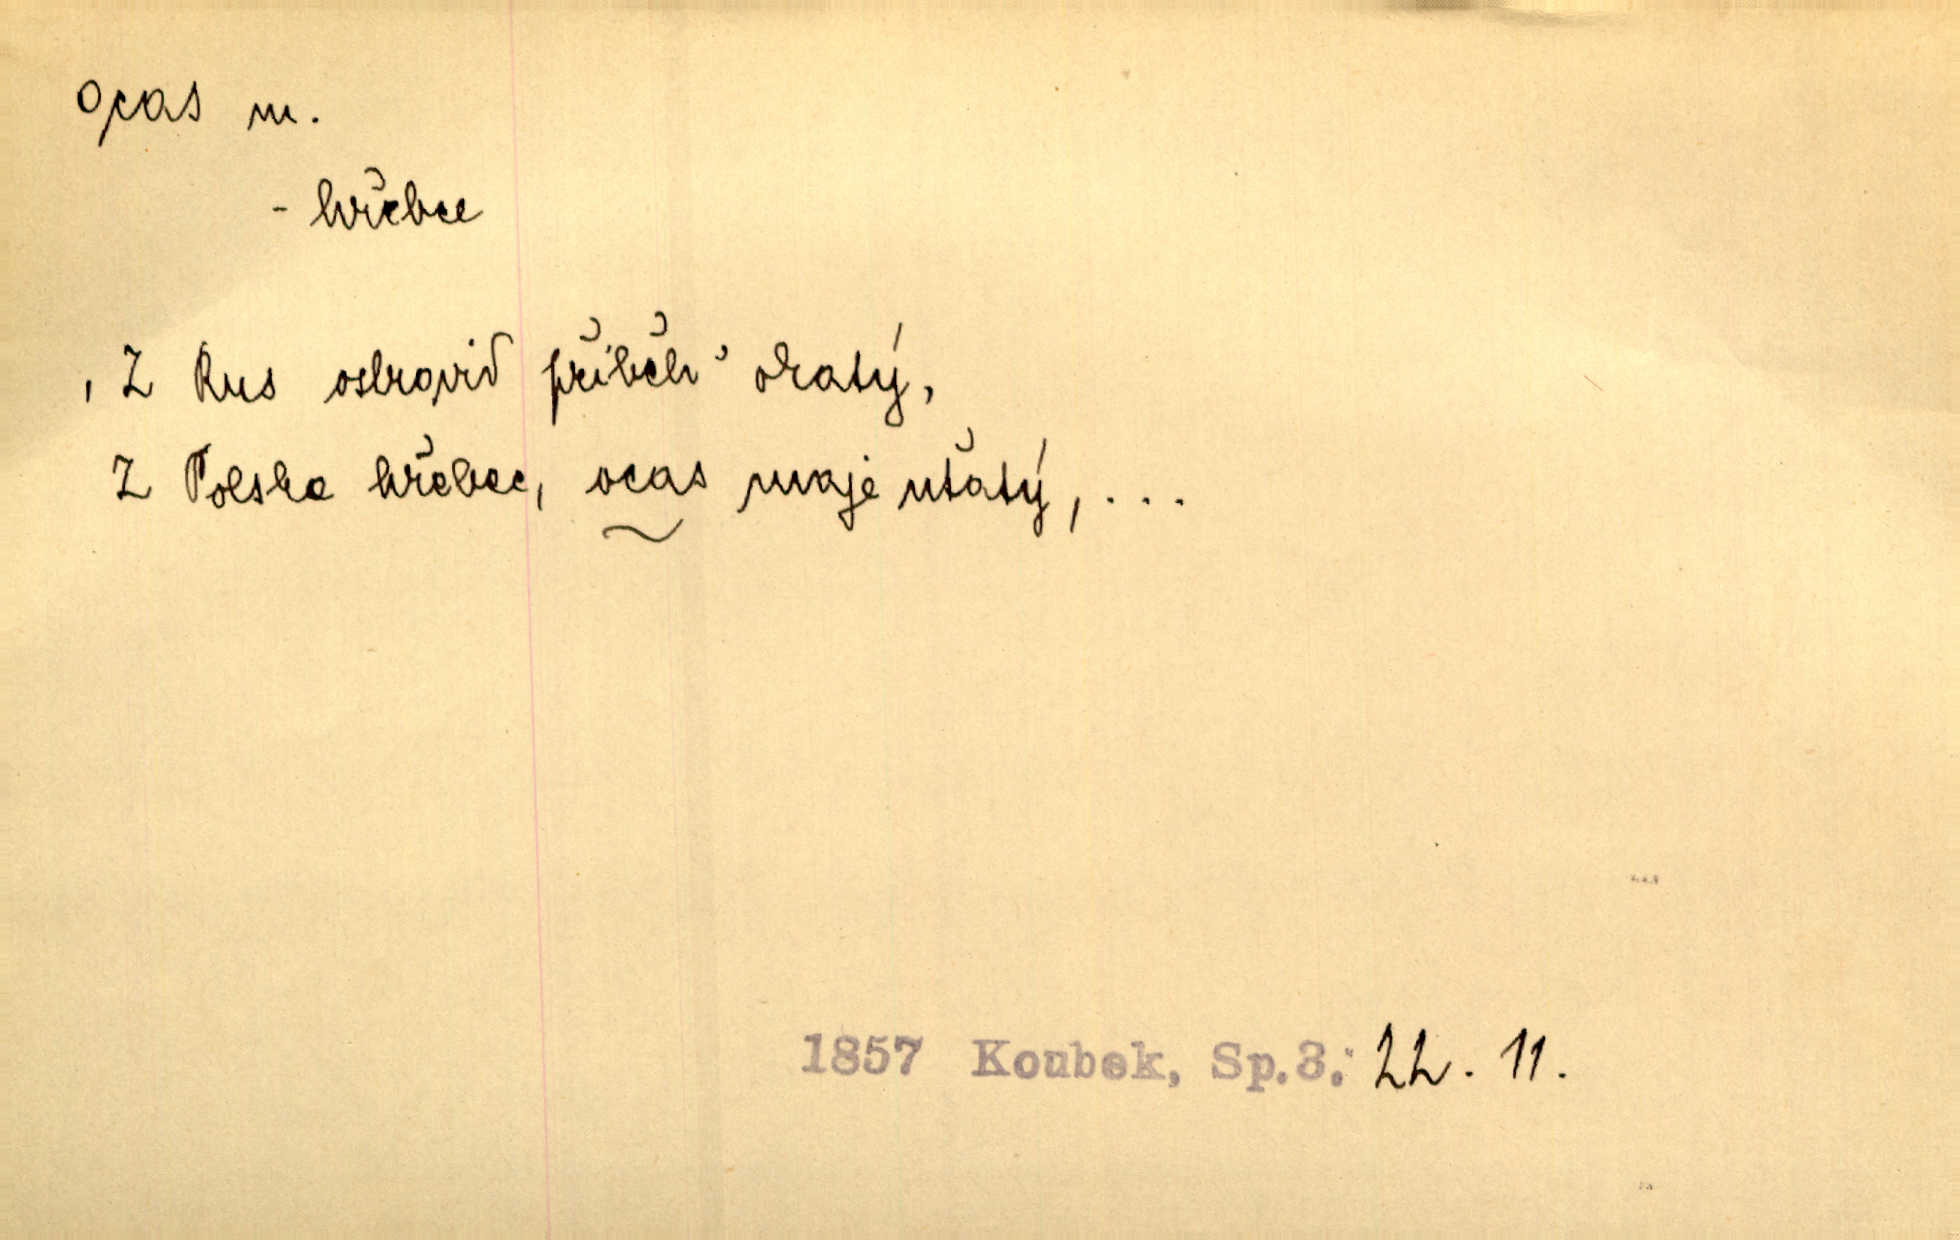 ocas m.
- hřebce
, Z Rus ostrovid přiběh' dratý,
Z Polska hřebec, ocas maje uťatý, ...
1857 Koubek, Sp.3. 22. 11.